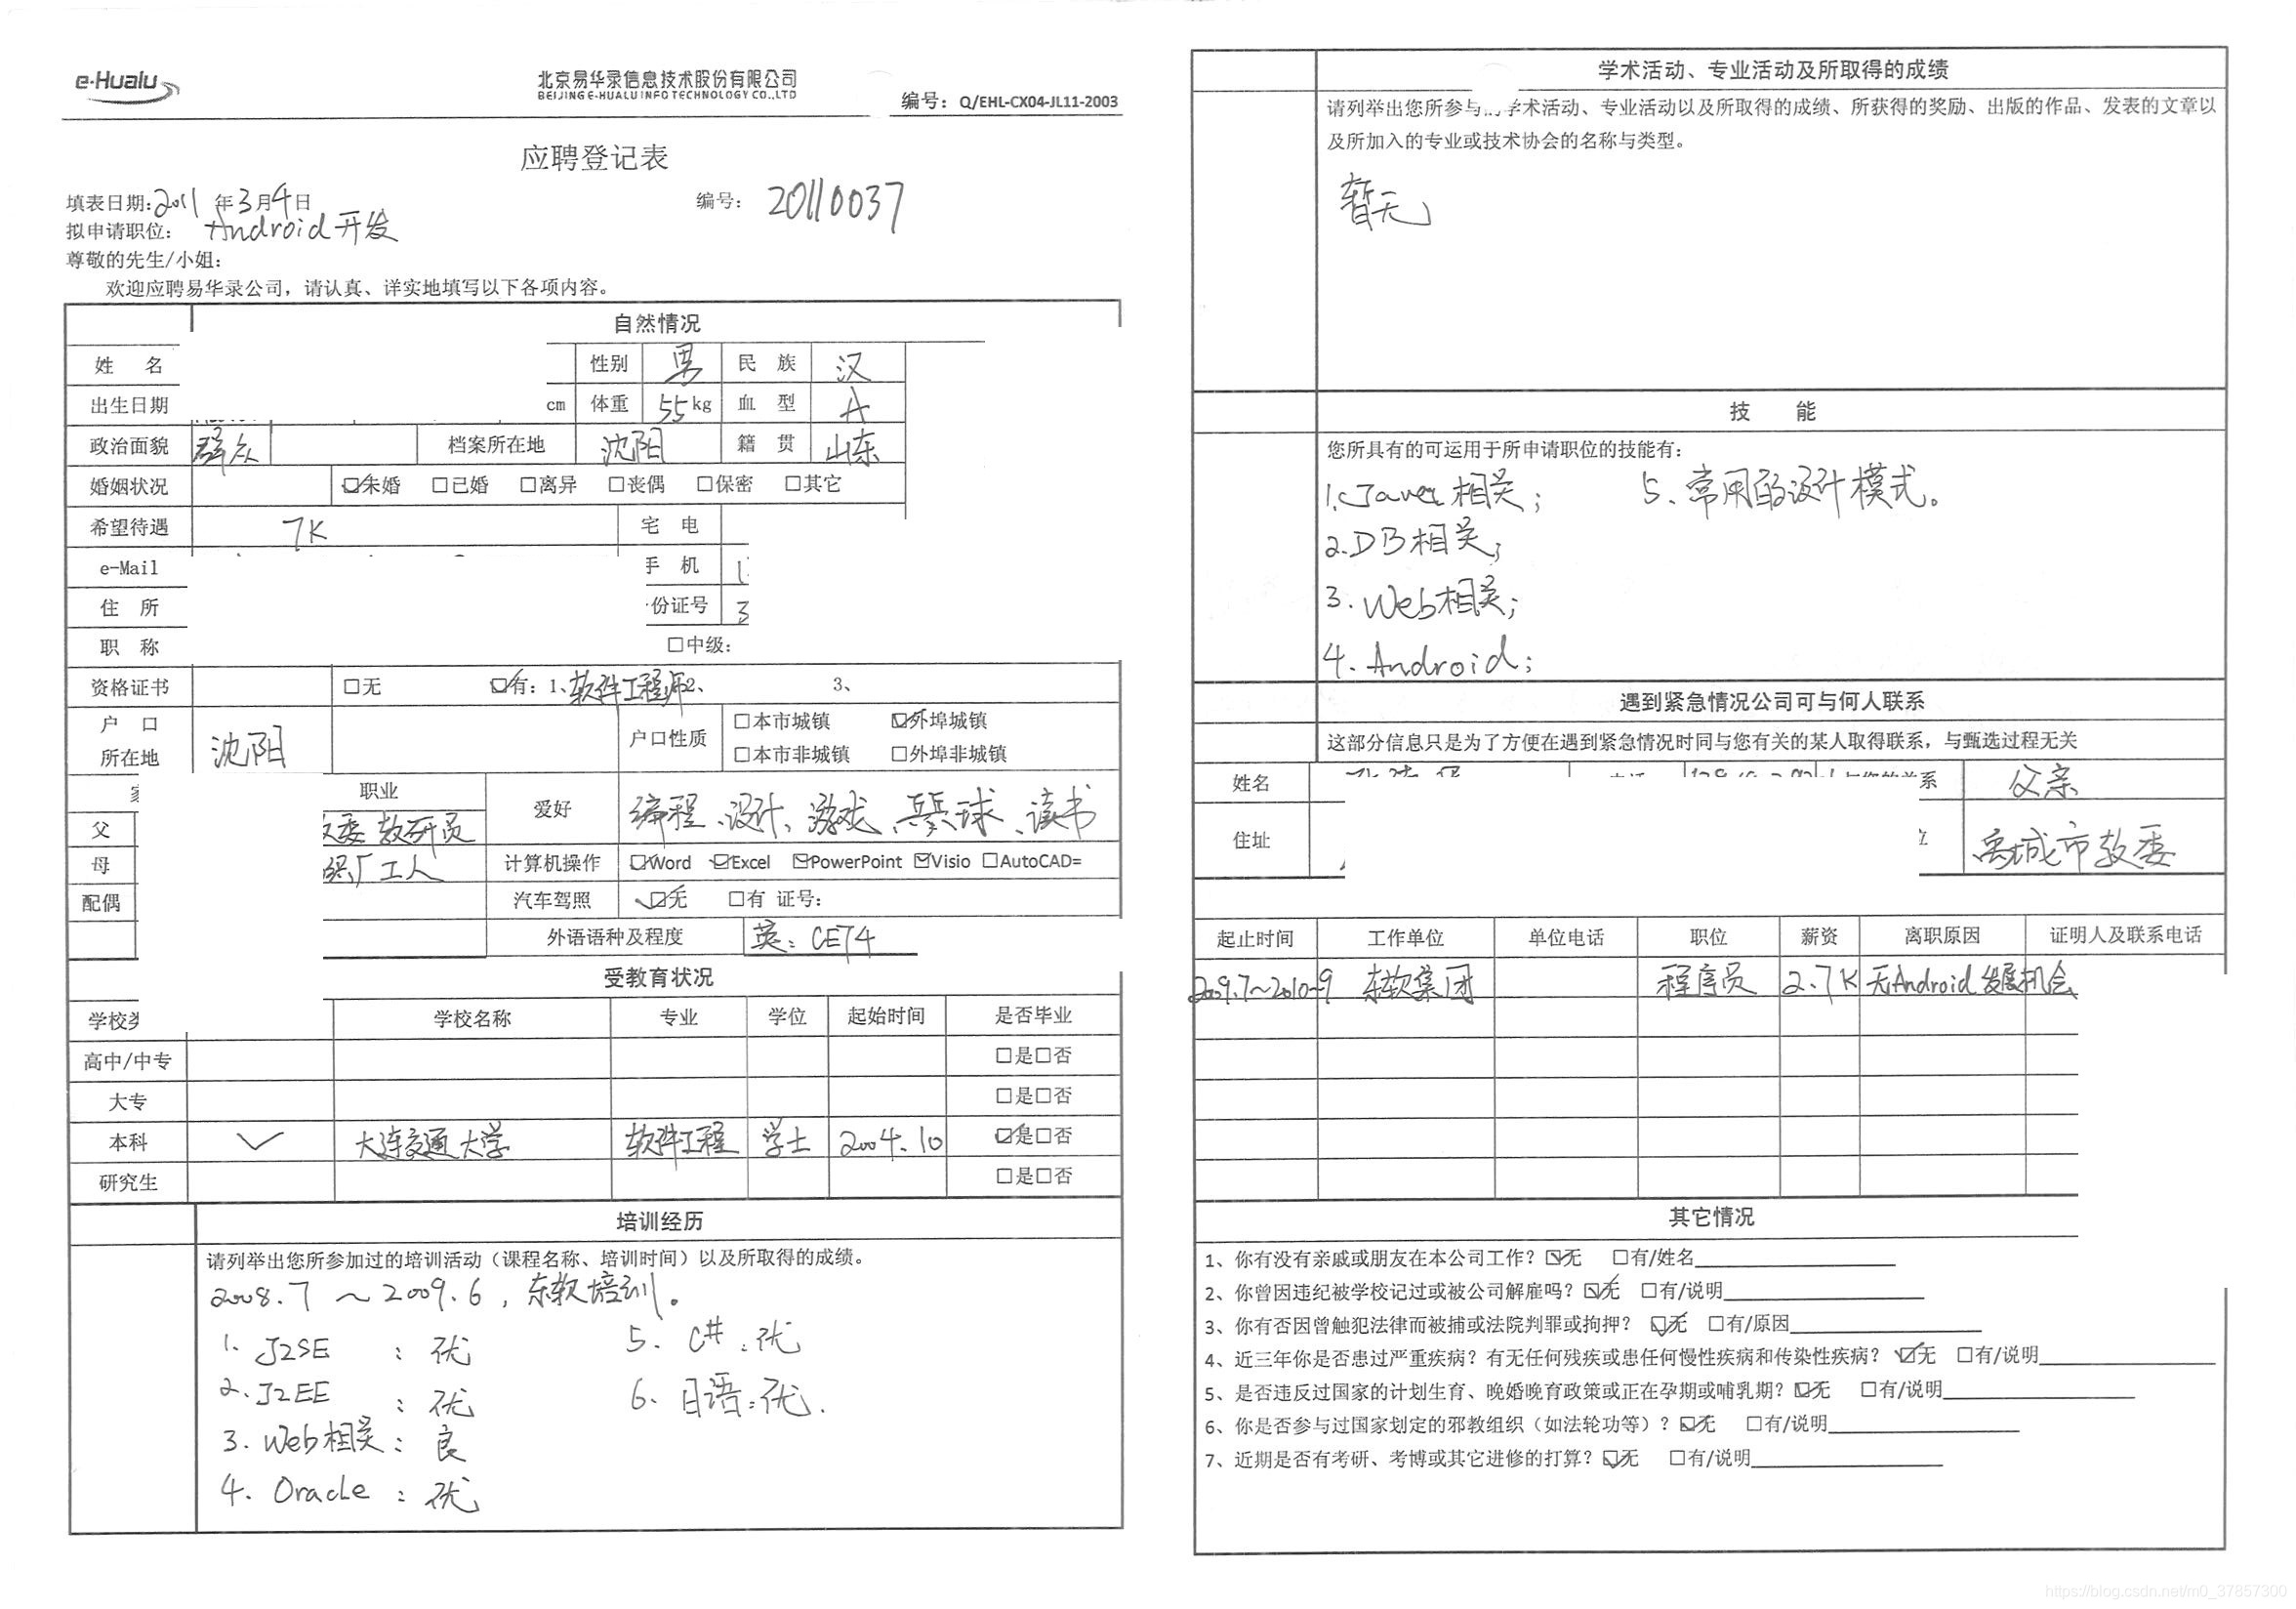 e-Hualu
北京易华录信息技术股份有限公司
BEIJING E-HUALU INFO TECHNOLOGY CO.,LTD
编号：Q/EHL-CX04-JL11-2003
应聘登记表
填表日期:2011 年3月4日 编号： 20110037
拟申请职位： Android开发
尊敬的先生/小姐：
欢迎应聘易华录公司，请认真、详实地填写以下各项内容。
自然情况
姓 名 性别 男 民 族 汉
出生日期 cm 体重 55kg 血 型 A
政治面貌 群众 档案所在地 沈阳 籍 贯 山东
婚姻状况 ☑未婚 □已婚 □离异 □丧偶 □保密 □其它
希望待遇 7K 宅 电
e-Mail 手 机 1
住 所 份证号 3
职 称 □中级：
资格证书 □无 ☑有：1、软件工程师2、 3、
户 口 所在地 沈阳 户口性质 □本市城镇 ☑外埠城镇
□本市非城镇 □外埠非城镇
职业 爱好 编程、设计、游戏、乒乓球、读书
父 教委 教研员
母 厂工人 计算机操作 ☑Word ☑Excel ☑PowerPoint ☑Visio □AutoCAD=
配偶 汽车驾照 ☑无 □有 证号：
外语语种及程度 英：CET4
受教育状况
学校类 学校名称 专业 学位 起始时间 是否毕业
高中/中专 □是□否
大专 □是□否
本科 ✓ 大连交通大学 软件工程 学士 2004.10 ☑是□否
研究生 □是□否
培训经历
请列举出您所参加过的培训活动（课程名称、培训时间）以及所取得的成绩。
2008.7～2009.6，东软培训。
1. J2SE ：优 5. C#：优
2. J2EE ：优 6. 日语：优.
3. Web相关：良
4. Oracle ：优
学术活动、专业活动及所取得的成绩
请列举出您所参与 学术活动、专业活动以及所取得的成绩、所获得的奖励、出版的作品、发表的文章以
及所加入的专业或技术协会的名称与类型。
暂无
技 能
您所具有的可运用于所申请职位的技能有：
1.Java相关； 5、常用的设计模式。
2.DB相关；
3.Web相关；
4.Android；
遇到紧急情况公司可与何人联系
这部分信息只是为了方便在遇到紧急情况时同与您有关的某人取得联系，与甄选过程无关
姓名 系 父亲
住址 禹城市教委
起止时间 工作单位 单位电话 职位 薪资 离职原因 证明人及联系电话
2009.7～2010.9 东软集团 程序员 2.7K 无Android发展机会
其它情况
1、你有没有亲戚或朋友在本公司工作？☑无 □有/姓名
2、你曾因违纪被学校记过或被公司解雇吗？☑无 □有/说明
3、你有否因曾触犯法律而被捕或法院判罪或拘押？ ☑无 □有/原因
4、近三年你是否患过严重疾病？有无任何残疾或患任何慢性疾病和传染性疾病？ ☑无 □有/说明
5、是否违反过国家的计划生育、晚婚晚育政策或正在孕期或哺乳期？☑无 □有/说明
6、你是否参与过国家划定的邪教组织（如法轮功等）？☑无 □有/说明
7、近期是否有考研、考博或其它进修的打算？☑无 □有/说明
https://blog.csdn.net/m0_37857300